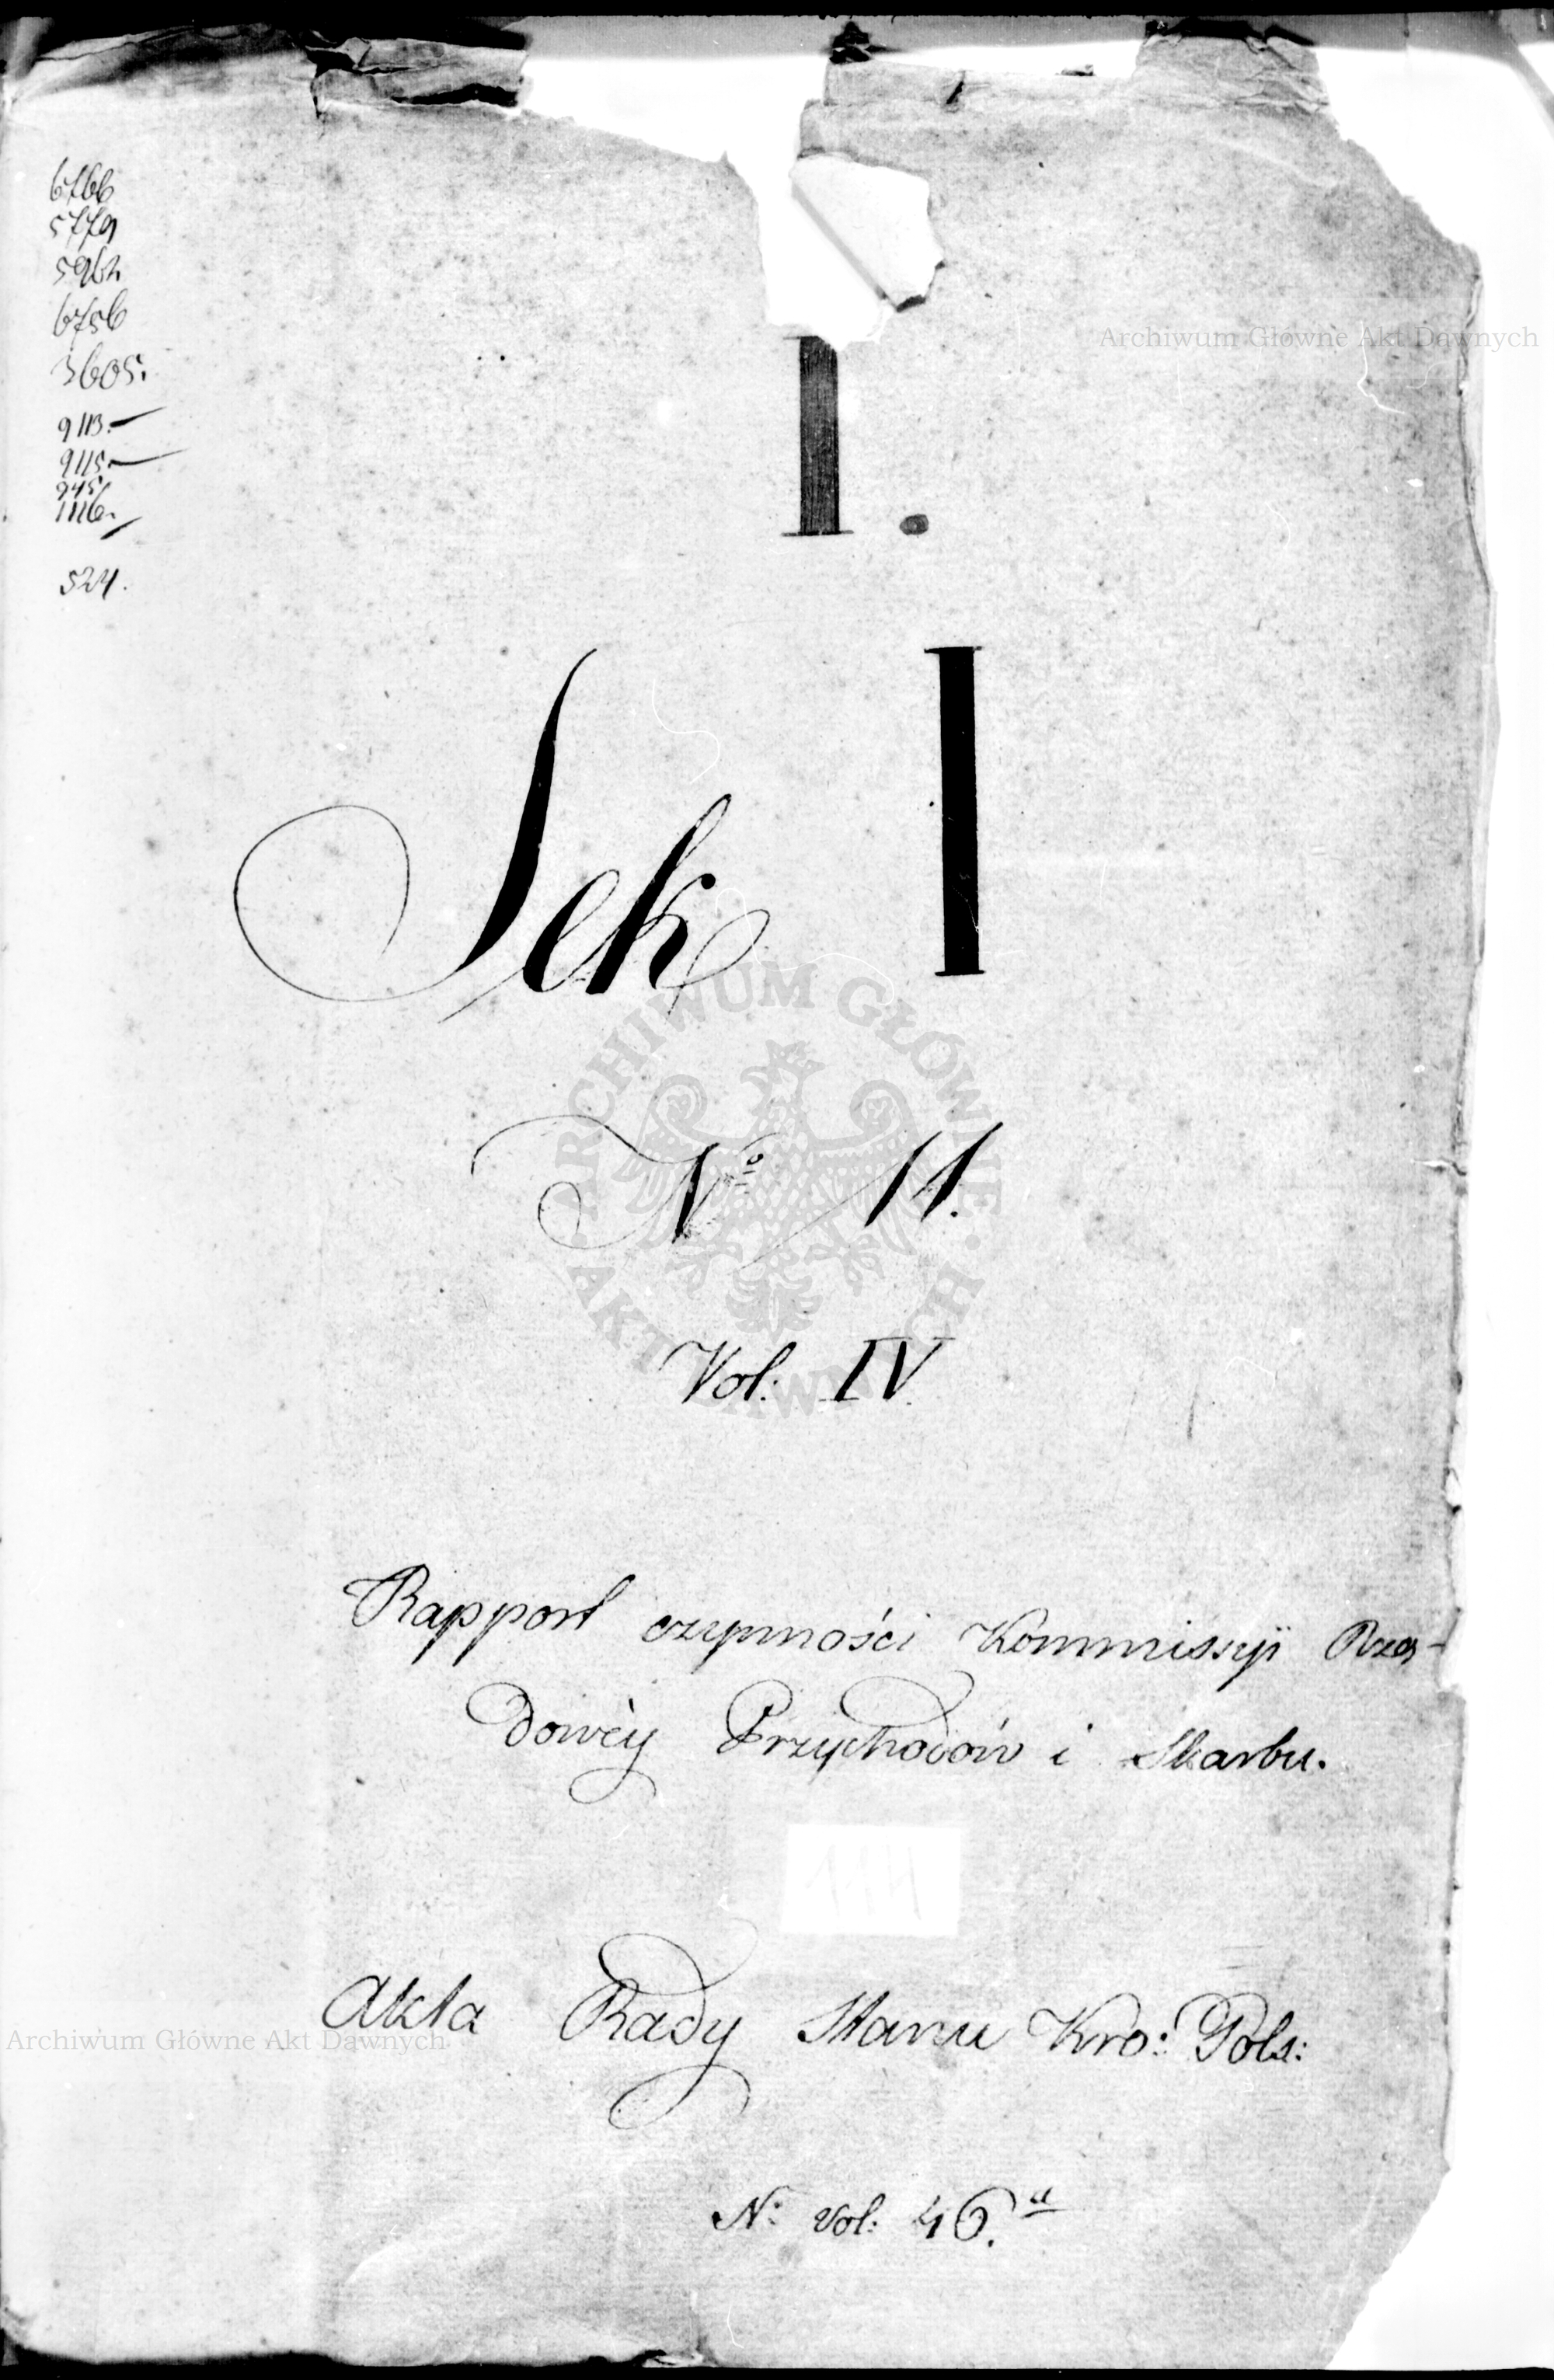 6766
5779
5962
6756
3605.
9113.
9115.
945
1116.
524.
I.
Sek I
Nº 11.
Vol: IV.
Rapport czynności Kommissyi Rzą-
dowéy Przychodów i Skarbu.
144
Akta Rady Stanu Kro: Pols:
Nº Vol: 46.a
Archiwum Główne Akt Dawnych
ARCHIWUM GŁÓWNE AKT DAWNYCH
Archiwum Główne Akt Dawnych